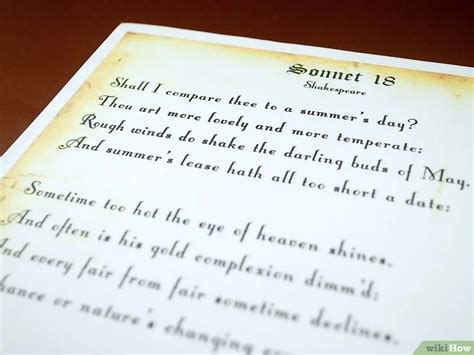 Sonnet 18
Shakespeare
Shall I compare thee to a summer's day?
Thou art more lovely and more temperate:
Rough winds do shake the darling buds of May.
And summer's lease hath all too short a date:
Sometime too hot the eye of heaven shines.
And often is his gold complexion dimm'd:
And every fair from fair sometime declines.
chance or nature's changing
wikiHow